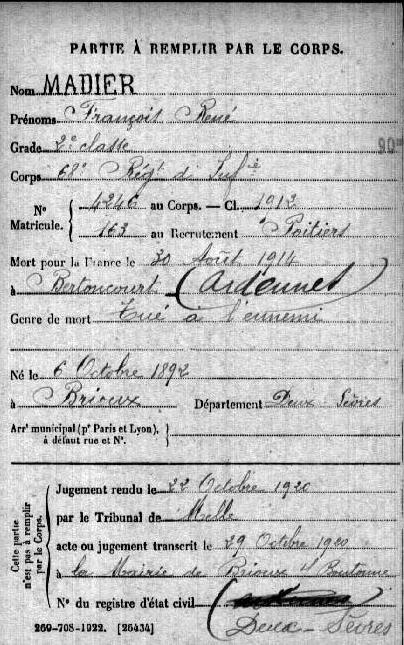 PARTIE À REMPLIR PAR LE CORPS.
Nom MADIER
Prénoms François René
Grade 2e classe
90
Corps 68e Régt d'Infie
N° Matricule. { 4246 au Corps. — Cl. 1912
163 au Recrutement Poitiers
Mort pour la France le 30 Août 1914
à Bertoncourt (Ardennes)
Genre de mort Tué à l'ennemi
Né le 6 Octobre 1892
à Brioux Département Deux Sèvres
Arrt municipal (pr Paris et Lyon), à défaut rue et N°.
Cette partie n'est pas à remplir par le Corps.
Jugement rendu le 22 Octobre 1920
par le Tribunal de Melle
acte ou jugement transcrit le 29 Octobre 1920
à la Mairie de Brioux s/ Boutonne
N° du registre d'état civil
(Deux-Sèvres
269-708-1922. [26434]